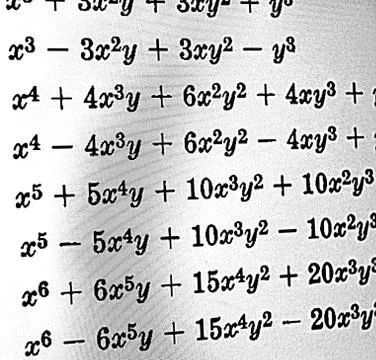 x³ + 3x²y + 3xy² + y³
x³ − 3x²y + 3xy² − y³
x⁴ + 4x³y + 6x²y² + 4xy³ +
x⁴ − 4x³y + 6x²y² − 4xy³ +
x⁵ + 5x⁴y + 10x³y² + 10x²y³
x⁵ − 5x⁴y + 10x³y² − 10x²y³
x⁶ + 6x⁵y + 15x⁴y² + 20x³y³
x⁶ − 6x⁵y + 15x⁴y² − 20x³y³